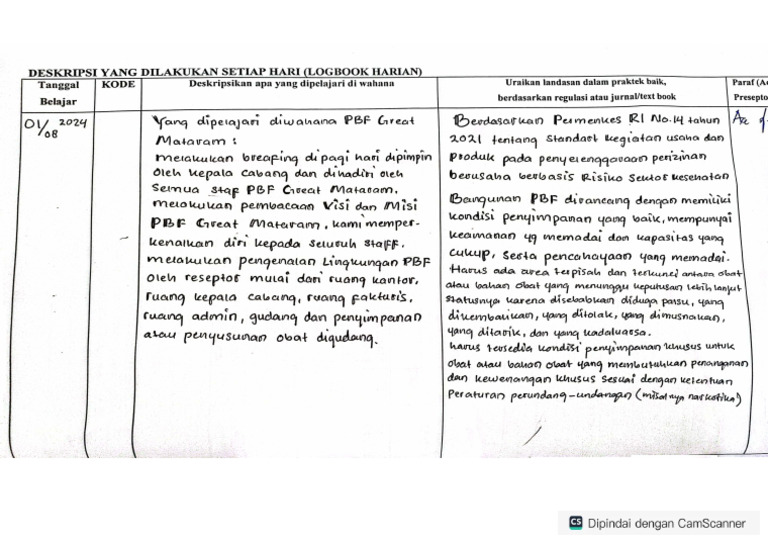 DESKRIPSI YANG DILAKUKAN SETIAP HARI (LOGBOOK HARIAN)
Tanggal Belajar
KODE
Deskripsikan apa yang dipelajari di wahana
Uraikan landasan dalam praktek baik,
berdasarkan regulasi atau jurnal/text book
Paraf (A
Presepto
01/08 2024
Yang dipelajari diwahana PBF Great
Mataram :
melakukan breafing dipagi hari dipimpin
oleh kepala cabang dan dihadiri oleh
Semua staf PBF Great Mataram.
melakukan pembacaan Visi dan Misi
PBF Great Mataram, kami memper-
kenalkan diri kepada seluruh staff.
melakukan pengenalan Lingkungan PBF
oleh reseptor mulai dari ruang kantor,
ruang kepala cabang, ruang fakturis,
ruang admin, gudang dan penyimpanan
atau penyusunan obat digudang.
Berdasarkan Permenkes RI No.14 tahun
2021 tentang Standart kegiatan usaha dan
Produk pada penyelenggaraan perizinan
berusaha berbasis Risiko Sektor kesehatan
Bangunan PBF dirancang dengan memiliki
kondisi penyimpanan yang baik, mempunyai
keamanan yg memadai dan kapasitas yang
cukup, serta pencahayaan yang memadai.
Harus ada area terpisah dan terkunci antara obat
atau bahan obat yang menunggu keputusan lebih lanjut
statusnya karena disebabkan diduga palsu, yang
dikembalikan, yang ditolak, yang dimusnakan,
yang ditarik, dan yang kadaluarsa.
harus tersedia kondisi penyimpanan khusus untuk
obat atau bahan obat yang membutuhkan penanganan
dan kewenangan khusus sesuai dengan ketentuan
Peraturan perundang-undangan (misalnya narkotika)
CS Dipindai dengan CamScanner